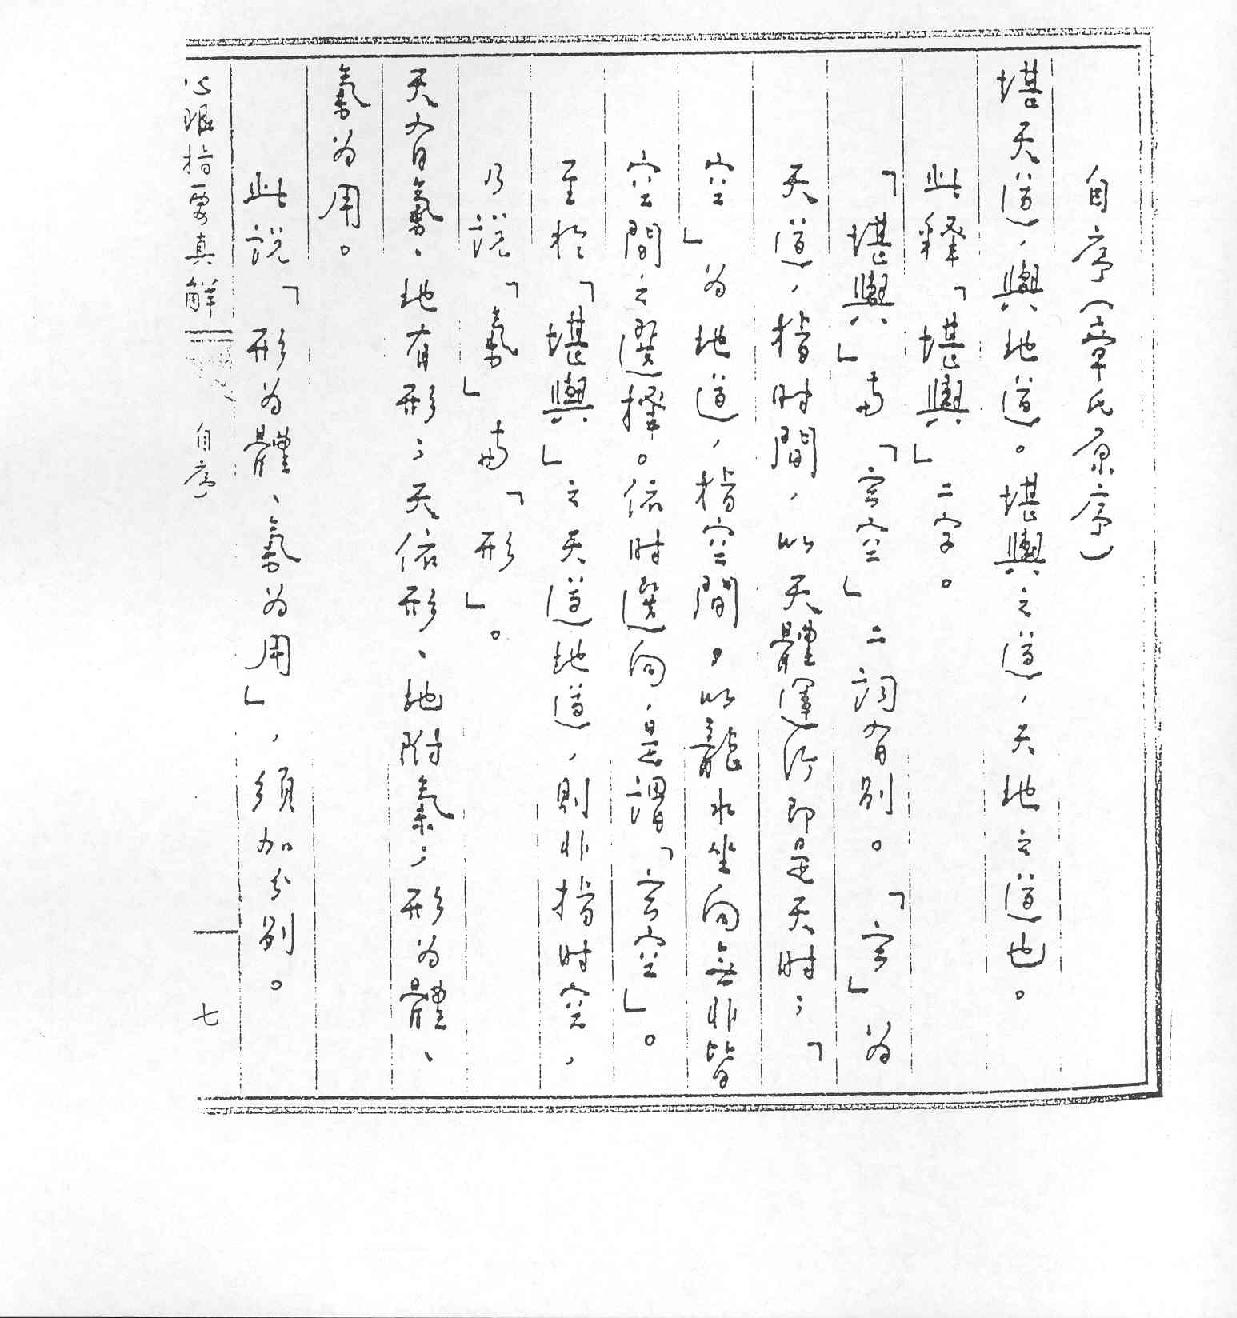 自序（章氏原序）
堪天道，輿地道。堪輿之道，天地之道也。
此释「堪輿」二字。
「堪輿」与「玄空」二詞有别。「玄」为
天道，指时間，以天體運行即是天时；「
空」为地道，指空間。以龍水坐向無非皆
空間之選擇。依时選向，是謂「玄空」。
至於「堪輿」之天道地道，則非指时空，
乃説「氣」与「形」。
天有氣、地有形；天依形、地附氣；形为體、
氣为用。
此説「形为體、氣为用」，須加分别。
心眼指要真解 自序 七